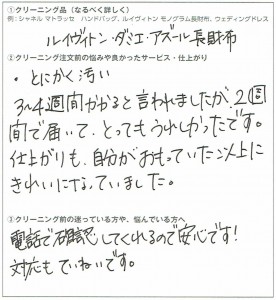 ①クリーニング品（なるべく詳しく）
例：シャネル マトラッセ　ハンドバッグ、ルイヴィトン モノグラム長財布、ウェディングドレス
ルイヴィトン・ダミエ・アズール長財布
②クリーニング注文前の悩みや良かったサービス・仕上がり
・とにかく汚い
3〜4週間かかると言われましたが、2週
間で届いて、とってもうれしかったです。
仕上がりも、自分がおもっていた以上に
きれいになっていました。
③クリーニング前の迷っている方や、悩んでいる方へ
電話で確認してくれるので安心です！
対応もていねいです。